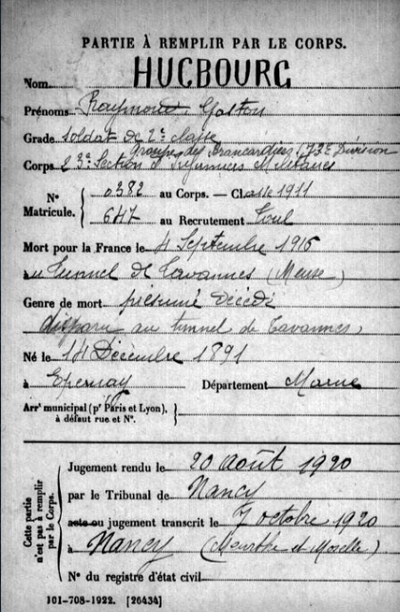 PARTIE À REMPLIR PAR LE CORPS.
Nom HUCBOURG
Prénoms Raymond Gaston
Grade soldat de 2e classe
Groupe des Brancardiers 73e Division
Corps 23e Section d'Infirmiers Militaires
N° Matricule. { 0382 au Corps. — Classe 1911
647 au Recrutement Toul
Mort pour la France le 4 Septembre 1916
au Tunnel de Tavannes (Meuse)
Genre de mort présumé décédé
disparu au tunnel de Tavannes,
Né le 14 Décembre 1891
à Epernay Département Marne
Arrt municipal (pr Paris et Lyon), à défaut rue et N°. }
Cette partie n'est pas à remplir par le Corps.
Jugement rendu le 20 août 1920
par le Tribunal de Nancy
acte ou jugement transcrit le 7 octobre 1920
à Nancy (Meurthe et Moselle)
N° du registre d'état civil
101-708-1922. [26434]